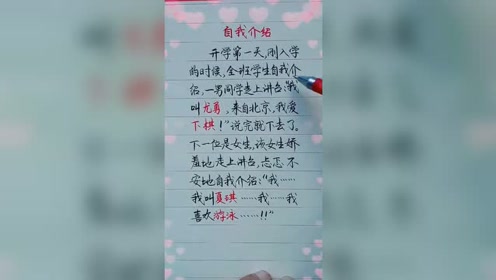 自我介绍
开学第一天,刚入学
的时候,全班学生自我介
绍,一男同学走上讲台:“我
叫尤勇,来自北京,我爱
下棋!”说完就下去了。
下一位是女生,该女生娇
羞地走上讲台,忐忑不
安地自我介绍:“我……
我叫夏琪……我……我
喜欢游泳……!!”